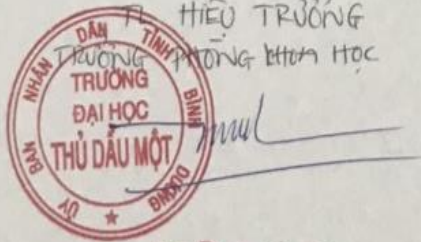 TL HIỆU TRƯỞNG
TRƯỞNG PHÒNG KHOA HỌC
ỦY BAN NHÂN DÂN TỈNH BÌNH DƯƠNG
TRƯỜNG
ĐẠI HỌC
THỦ DẦU MỘT